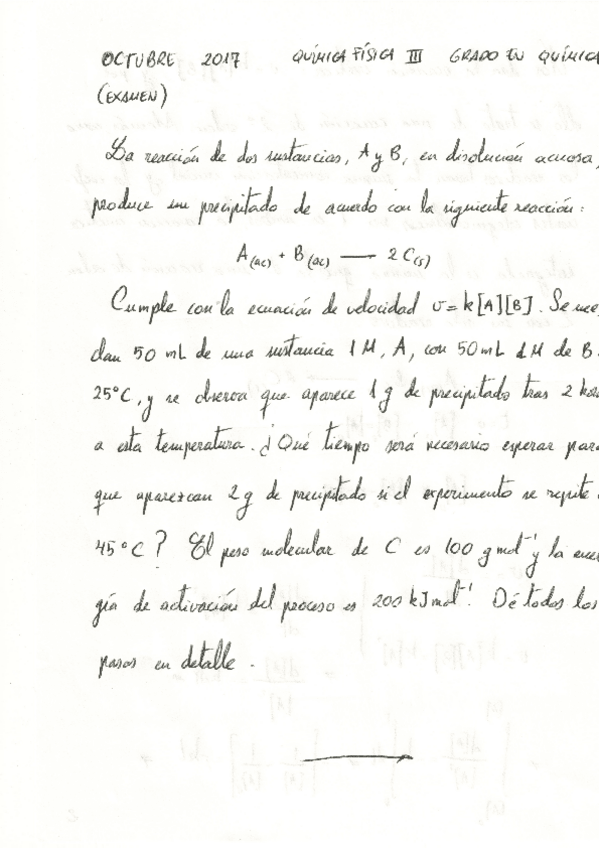 OCTUBRE 2017 QUÍMICA FÍSICA III GRADO EN QUÍMICA
(EXAMEN)
La reacción de dos sustancias, A y B, en disolución acuosa,
produce un precipitado de acuerdo con la siguiente reacción:
A(ac) + B(ac) — 2 C(s)
Cumple con la ecuación de velocidad v = k[A][B]. Se mez
clan 50 mL de una sustancia 1 M, A, con 50 mL 1 M de B
25°C, y se observa que aparece 1 g de precipitado tras 2 hor
a esta temperatura. ¿Qué tiempo será necesario esperar para
que aparezcan 2 g de precipitado si el experimento se repite
45°C? El peso molecular de C es 100 g mol⁻¹ y la ener
gía de activación del proceso es 200 kJ mol⁻¹. Dé todos los
pasos en detalle.